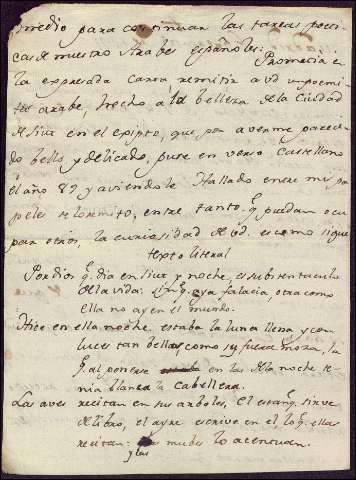 medio para continuar las tareas poeti-
cas de nuestro Arabes españoles: Prometia en
la expresada Carta remitir a vd un poemi-
ta arabe, hecho a la belleza de la Ciudad
de Siur en el egipto, que por averme pareci-
do bello y delicado, puse en verso Castellano
el año 89 y aviendole Hallado entre mis pa-
peles se lo remito, entre tanto q puedan ocu-
par otros, la curiosidad de vd. es como sigue
texto literal
Por dios q. dia en Siur y noche, es substentaculo
de la vida: sin q aya falacia, otra como
ella no ay en el mundo.
Hice en ella noche, estaba la luna llena y con
luces tan bellas, como si fuera moza, la
q. al ponerse en las Ila noche te-
nia blanca la cabellera.
Las aves recitan en sus arboles, el estanq. sirve
de libro, el ayre escrive en el, lo q. ellas
recitan: y las nubes lo acentuan.